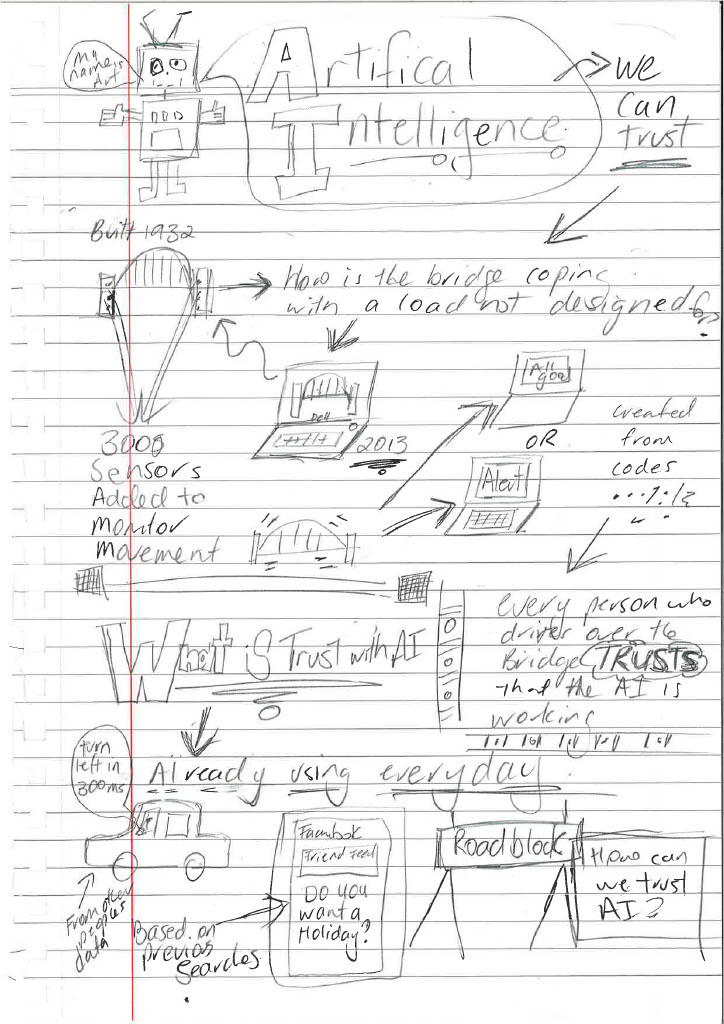 My
name is
Art
Artifical
Intelligence
we
can
trust
Built 1932
How is the bridge coping
with a load not designed for?
3000
Sensors
Added to
Monitor
Movement
Dell
2013
All
good
OR
Alert
created
from
codes
What is Trust with AI
every person who
drives over the
Bridge TRUSTS
that the AI is
working
Already using everyday.
turn
left in
300ms
From other
peoples
data
Based on
previos
searches
Facebook
Friend Feed
Do you
want a
Holiday?
Roadblock
How can
we trust
AI?